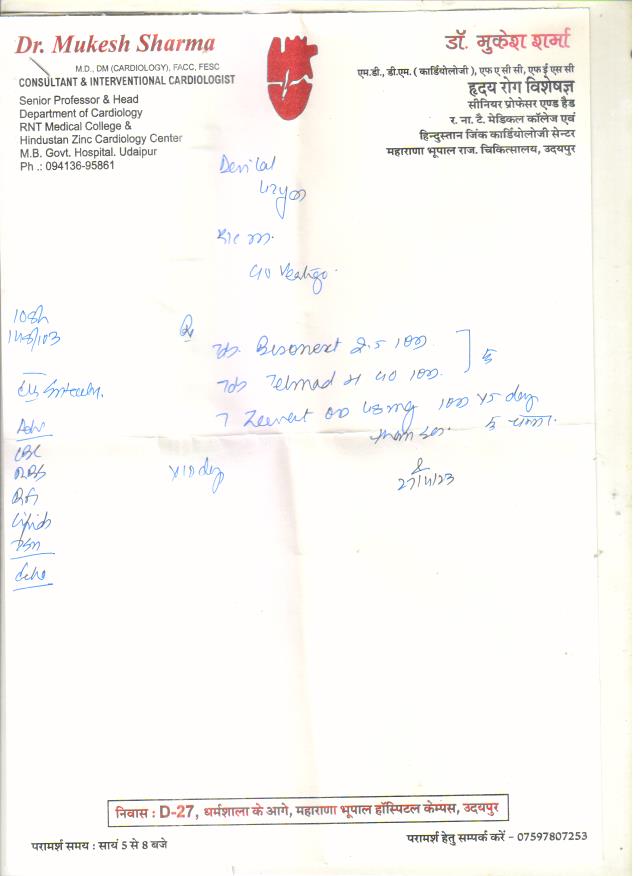 Dr. Mukesh Sharma
M.D., DM (CARDIOLOGY), FACC, FESC
CONSULTANT & INTERVENTIONAL CARDIOLOGIST
Senior Professor & Head
Department of Cardiology
RNT Medical College &
Hindustan Zinc Cardiology Center
M.B. Govt. Hospital. Udaipur
Ph .: 094136-95861
डॉ. मुकेश शर्मा
एम.डी., डी.एम. ( कार्डियोलोजी ), एफ ए सी सी, एफ ई एस सी
हृदय रोग विशेषज्ञ
सीनियर प्रोफेसर एण्ड हैड
र. ना. टै. मेडिकल कॉलेज एवं
हिन्दुस्तान जिंक कार्डियोलोजी सेन्टर
महाराणा भूपाल राज. चिकित्सालय, उदयपुर
Devilal
Vertigo
Rx
Bisonext 2.5
Telmad
x5 day
Adv
CBC
RBS
x10 day
27/11/23
Lipids
Echo
निवास : D-27, धर्मशाला के आगे, महाराणा भूपाल हॉस्पिटल केम्पस, उदयपुर
परामर्श समय : सायं 5 से 8 बजे
परामर्श हेतु सम्पर्क करें - 07597807253